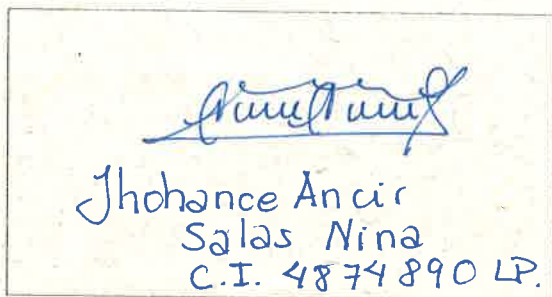 Jhohance Ancir
Salas Nina
C.I. 4874890 LP.